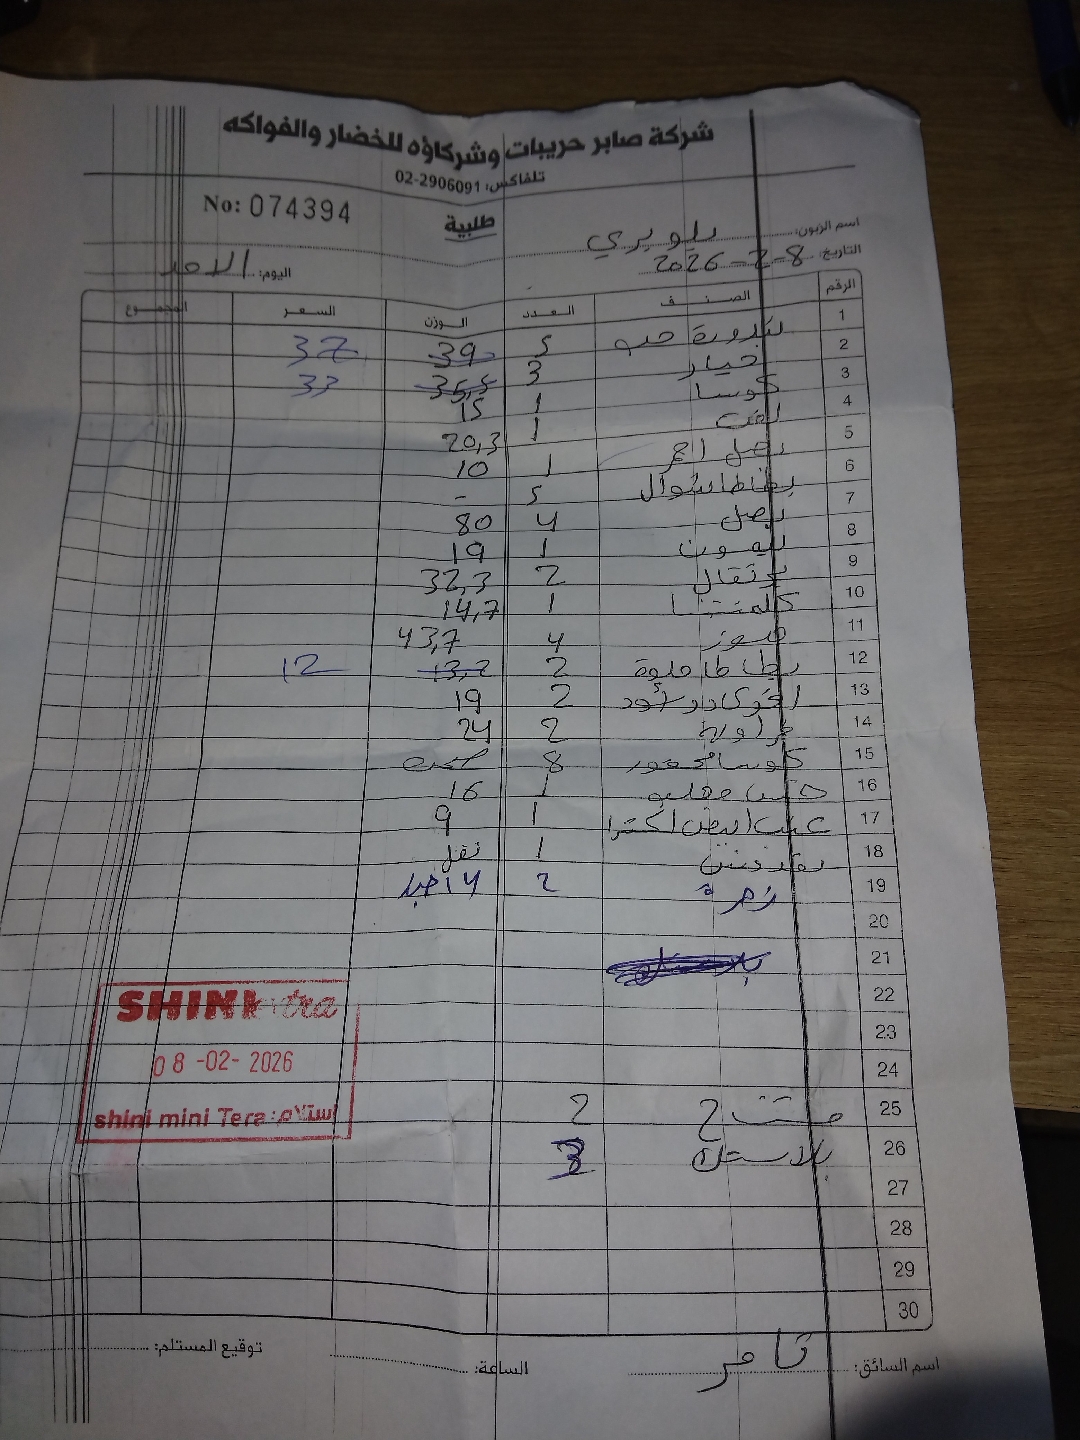 شركة صابر حريبات وشركاؤه للخضار والفواكه
تلفاكس: 02-2906091
No: 074394
طلبية
اسم الزبون:
التاريخ: 8-2-2026
اليوم: الاحد
الرقم الصنف العدد الوزن السعر المجموع
1 بندورة 5 39 37
2 خيار 3 35,5 33
3 كوسا 1 15
4 1 20,3
5 بصل احمر 1 10
6 بطاطا شوال 5 -
7 بصل 4 80
8 ليمون 1 19
9 برتقال 2 32,3
10 كلمنتينا 1 14,7
11 موز 4 43,7
12 بطاطا حلوة 2 13,2 12
13 افوكادو 2 19
14 فراولة 2 24
15 كوسا محفور 8
16 1 16
17 عنب ابيض اكسترا 1 9
18 بقدونس 1
19 زهرة 2 14 حبة
20
21
22
23
24
25 مشتاح 2
26 بلاستك 3
27
28
29
30
SHINI extra
08-02-2026
shini mini Tera استلام:
اسم السائق: تامر
الساعة:
توقيع المستلم: